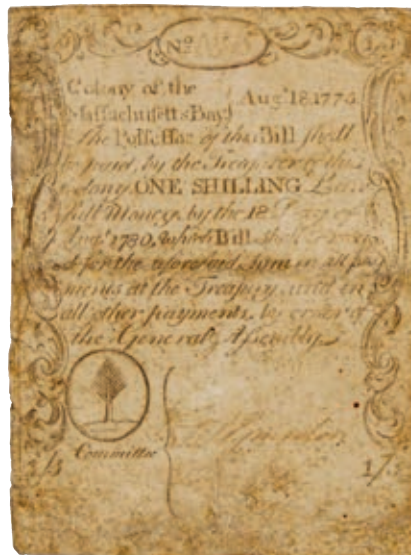 No
Colony of the
Massachusetts Bay Augt 18.1775
The Possessor of this Bill shall
be paid, by the Treasurer of this
Colony ONE SHILLING Law
full Money by the 18. Day of
Augt 1780, Which Bill shall be
for the aforesaid Sum in all pay
ments at the Treasury and in
all other payments by order of
the General Assembly
Committee
1/